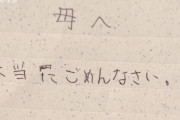 母へ
本当にごめんなさい。